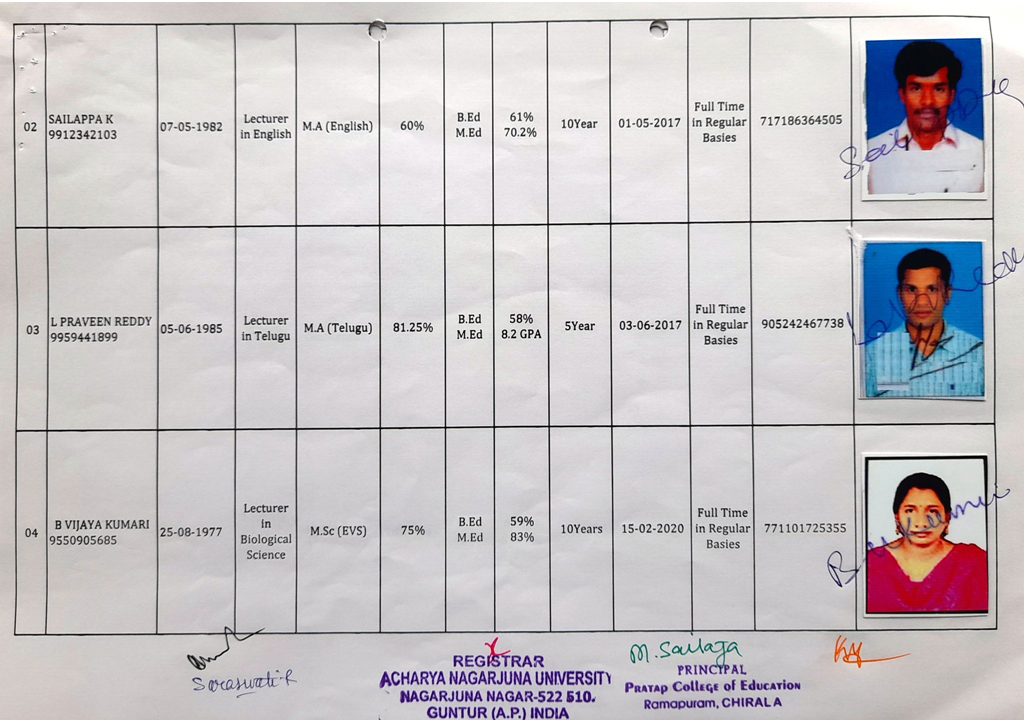 02
SAILAPPA K
9912342103
07-05-1982
Lecturer
in English
M.A (English)
60%
B.Ed
M.Ed
61%
70.2%
10Year
01-05-2017
Full Time
in Regular
Basies
717186364505
03
L PRAVEEN REDDY
9959441899
05-06-1985
Lecturer
in Telugu
M.A (Telugu)
81.25%
B.Ed
M.Ed
58%
8.2 GPA
5Year
03-06-2017
Full Time
in Regular
Basies
905242467738
04
B VIJAYA KUMARI
9550905685
25-08-1977
Lecturer
in
Biological
Science
M.Sc (EVS)
75%
B.Ed
M.Ed
59%
83%
10Years
15-02-2020
Full Time
in Regular
Basies
771101725355
Saraswati.R
REGISTRAR
ACHARYA NAGARJUNA UNIVERSITY
NAGARJUNA NAGAR-522 510.
GUNTUR (A.P.) INDIA
M. Sailaja
PRINCIPAL
PRATAP COLLEGE OF EDUCATION
Ramapuram, CHIRALA